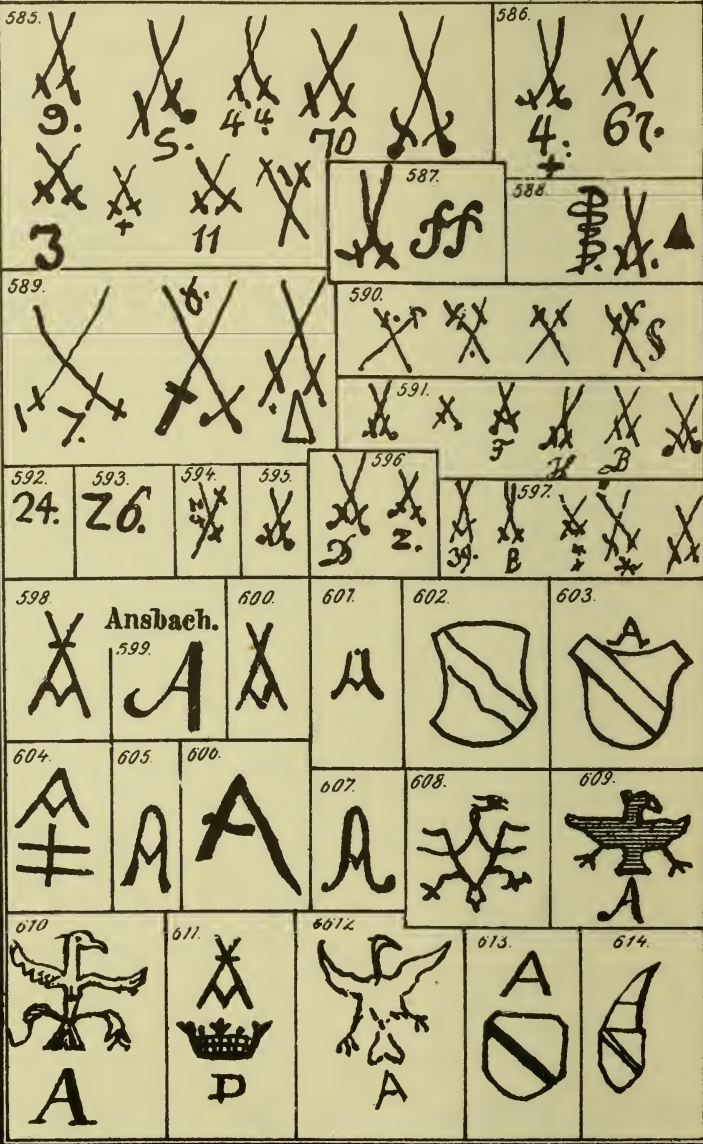 585.
9.
S.
4 4.
70
3
+
11
586.
4.
+
67.
587.
ff
588.
589.
7.
6.
590.
S
591.
F
H
B
592.
24.
593.
Z6.
594.
595.
596
D
Z.
597.
39.
B
598.
Ansbach.
599.
A
600.
601.
A
602.
603.
A
604.
A
605.
A
606.
A
607.
A
608.
609.
A
610
A
611.
A
D
6612
A
613.
A
614.